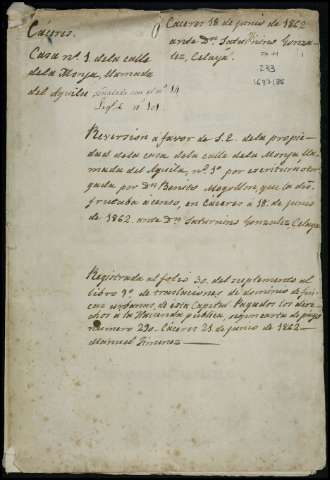 Cáceres.
Casa nº 1 de la calle
de la Monja, llamada
del Aguila señalada con el nº 14
Leg. 6 nº 301.
Cáceres 18 de junio de 1862
ante Dn Saturnino Gonza-
lez, Celaya.
233
1697/88
Reversion a favor de S.E. de la propie-
dad de la casa de la calle de la Monja lla-
mada del Aguila, nº 1º por escritura otor-
gada por Dn Benito Mogollon, que la dis-
frutaba a censo, en Cáceres á 18 de junio
de 1862 ante Dn Saturnino Gonzalez Celaya
Registrada al folio 30 del suplemento al
libro 3º de traslaciones de dominio de fin-
cas urbanas, de esta Capital. Pagados los dere-
chos a la Hacienda pública, segun carta de pago
numero 290. Cáceres 21 de junio de 1862—
Manuel Jimenez—